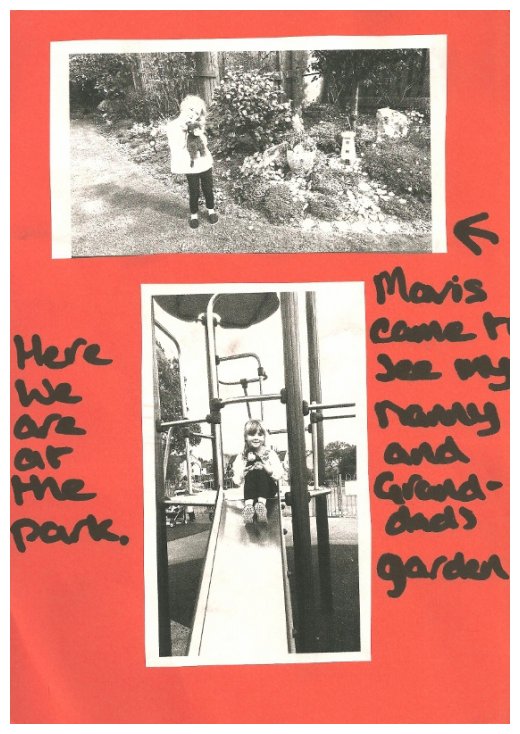 Mavis
came to
see my
nanny
and
Grand-
dads
garden
Here
we
are
at
the
park.